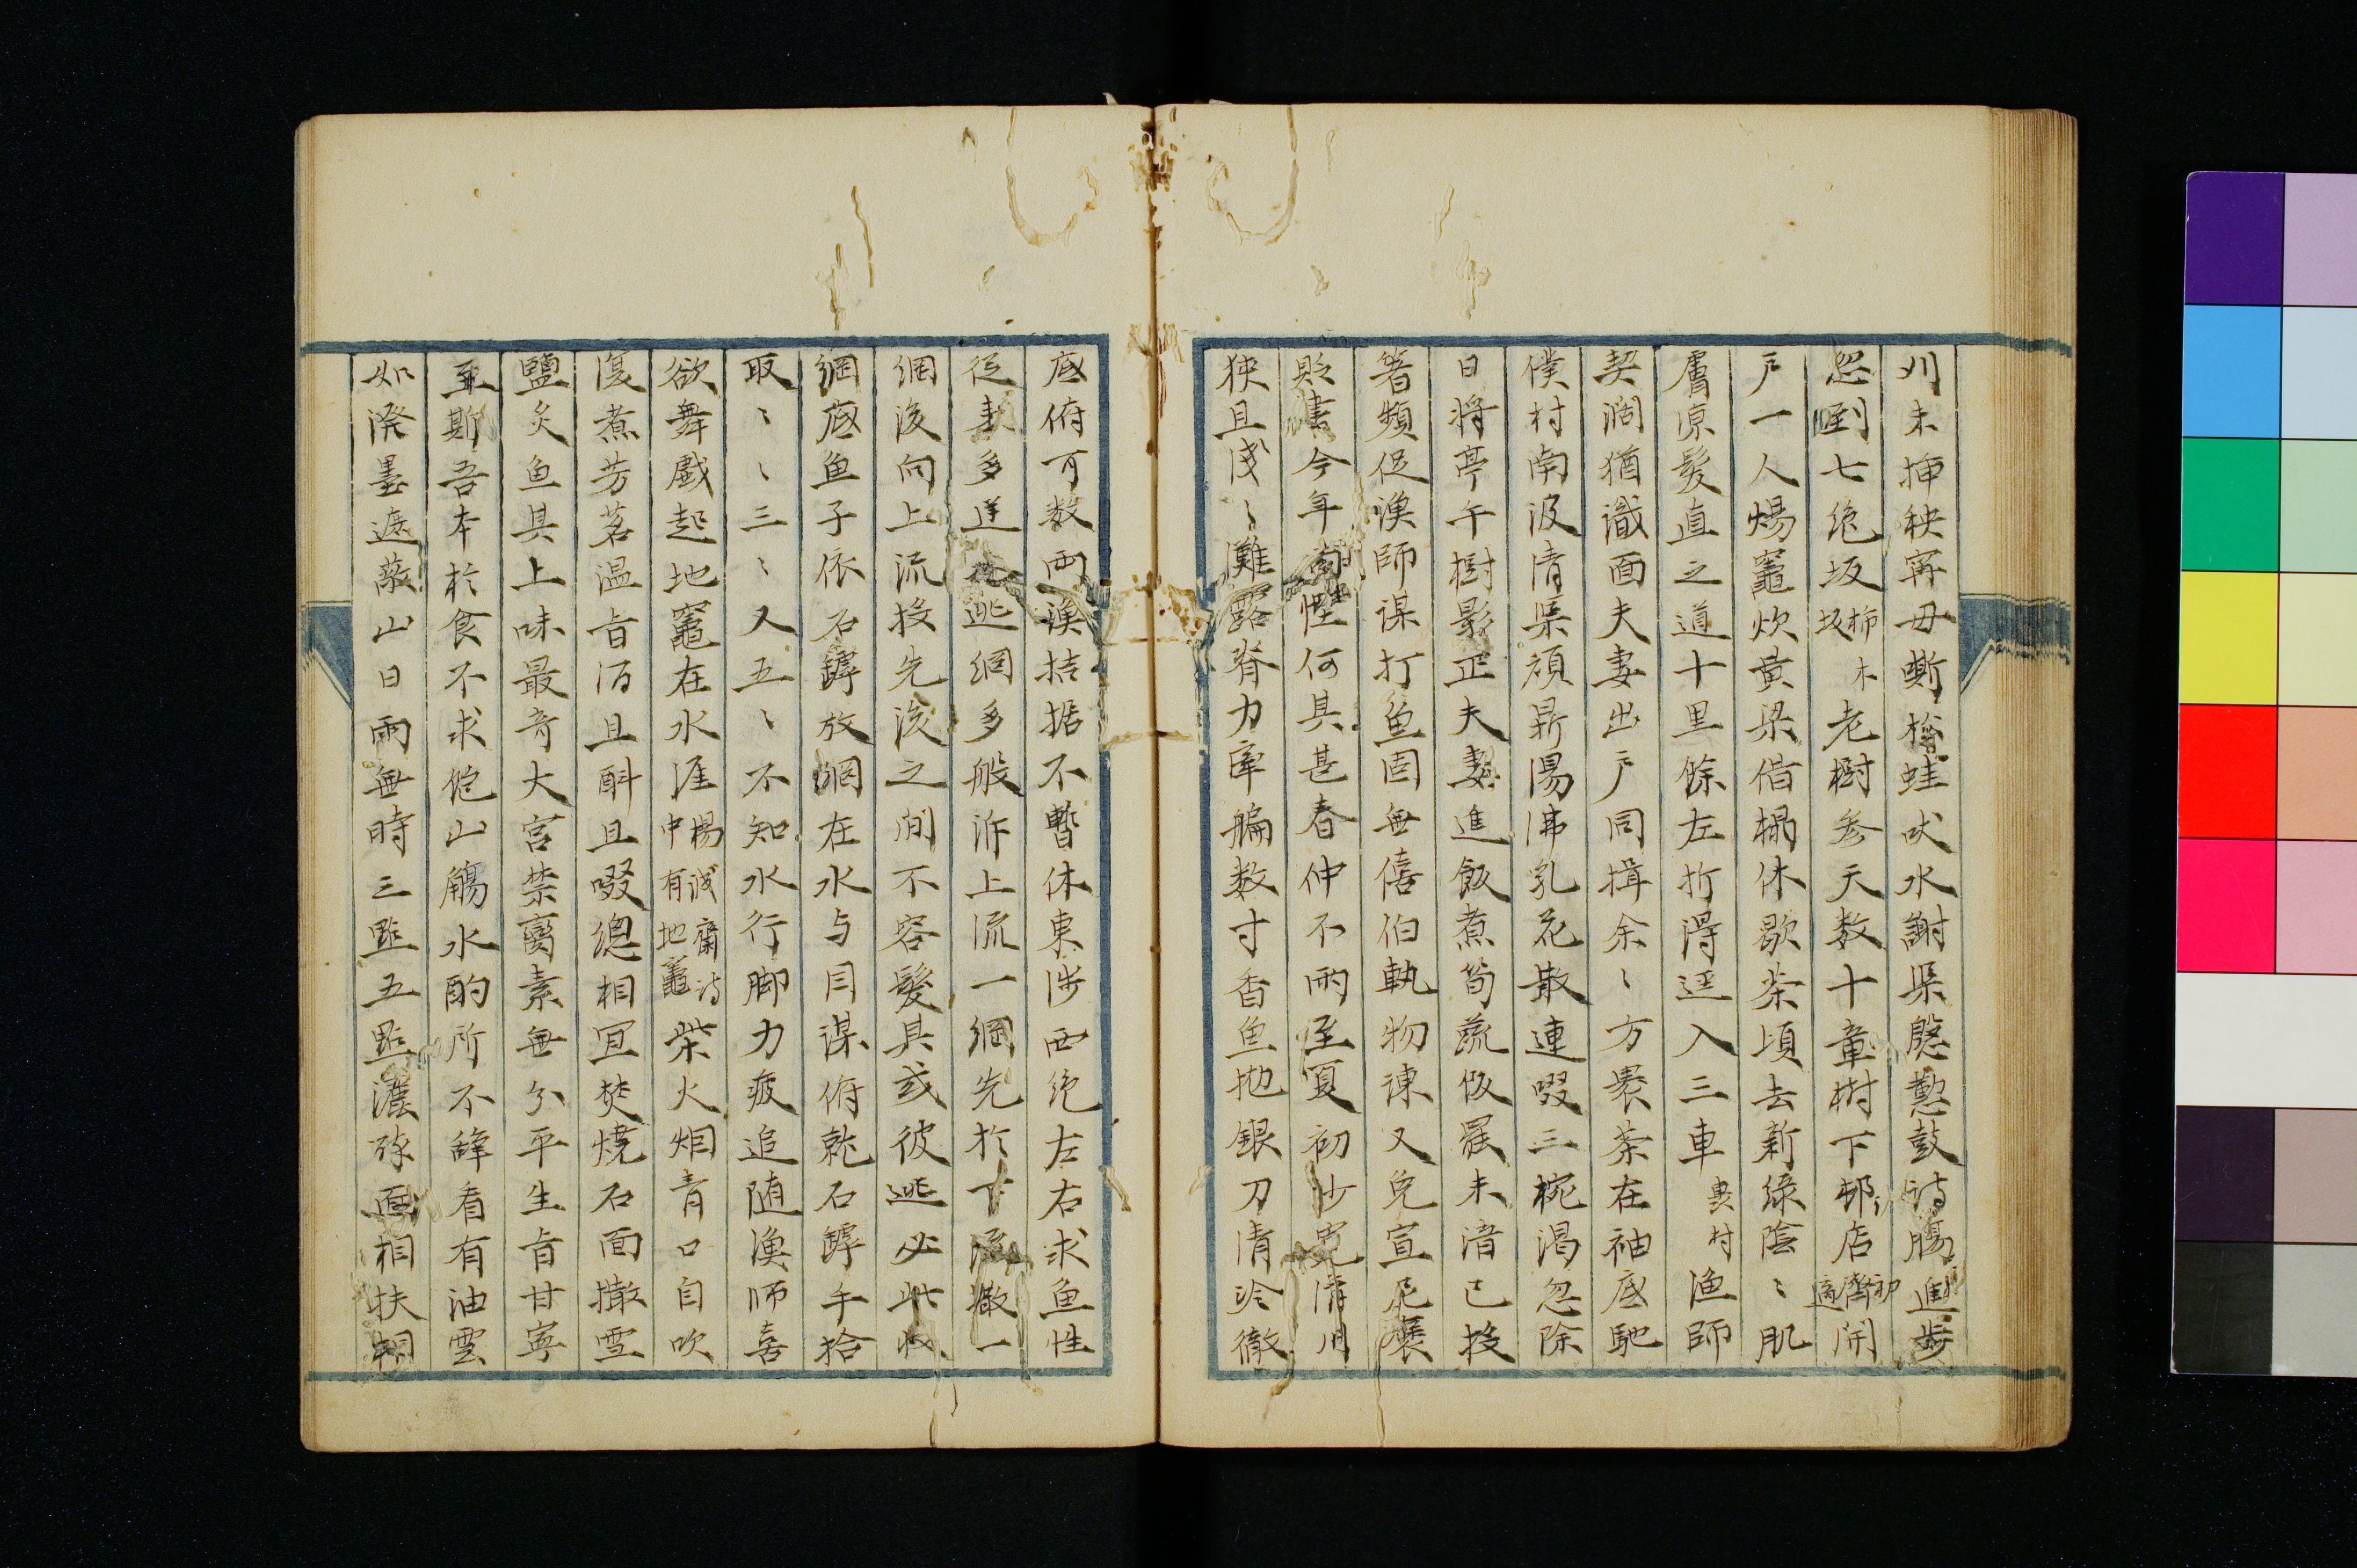 刈未挿秧寧毋嘶蛙吠水謝渠慇懃鼓詩腸進歩
忽到七絶坂柿木坂老樹参天数十章樹下邨店初齊適開
戸一人煬竈炊黄梁借榻休歇茶頃去新緑陰〻肌
膚凉髪直之道十里餘左折得逕入三車奥村漁師
契濶猶識面夫妻出戸同揖余〻方裹茶在袖底馳
僕村南汲清渠頑鼎湯沸乳花散連啜三椀渇忽除
日將亭午樹影正夫妻進飯煮筍蔬飯罷未谙已投
箸頻促漁師謀打魚固無僖伯執物諫又免宣尼襄
貶書今年何其甚春仲不雨至夏初沙清川
狭且浅〻灘露脊力牽艑数寸香魚拋銀刀清泠徹
底俯可数両漁拮据不暫休東渉西絶左右求魚性
従多逆逃網多般泝上流一網先於下流撒一
網後向上流投先後之間不容髪其或彼逃必此收
網底魚子依石罅放網在水与目謀俯就石罅手拾
取〻〻三〻又五〻不知水行脚力疲追随漁師喜
欲舞戯起地竈在水涯楊誠齋詩中有地竈柴火烟青口自吹
復煮芳茗温旨酒且酙且啜總相宜焚焼石面撒雪
鹽炙魚其上味最奇大宮禁臠素無分平生旨甘寧
至斯吾本於食不求飽山觴水酌所不辞看有油雲
如潑墨遮蔽山日雨無時三點五點灑孫面相扶相